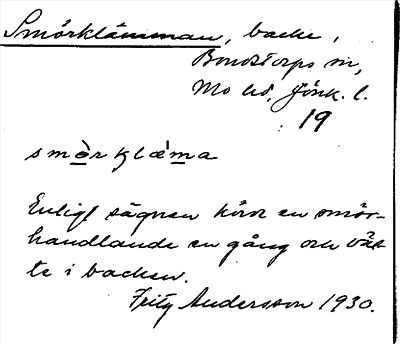 Smörklämman, backe,
Bondstorps sn,
Mo hd, Jönk. l.
19
smö̀rklæ̀ma
Enligt sägnen körde en smör-
handlande en gång och väl-
te i backen.
Fritz Andersson 1930.